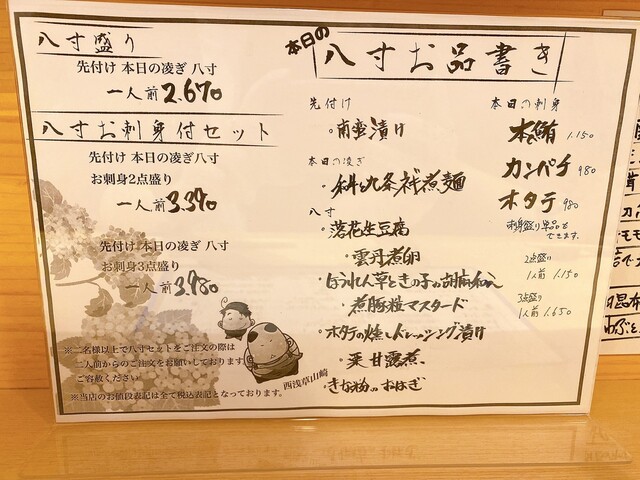 八寸盛り
先付け 本日の凌ぎ 八寸
一人前 2.670
八寸お刺身付セット
先付け 本日の凌ぎ八寸
お刺身2点盛り
一人前 3.370
先付け 本日の凌ぎ 八寸
お刺身3点盛り
一人前 3.980
※二名様以上で八寸セットをご注文の際は
二人前からのご注文をお願いしております
ご容赦ください
※当店のお値段表記は全て税込表記となっております。
西浅草山崎
本日の
八寸お品書き
先付け
・南蛮漬け
本日の凌ぎ
九条 煮麺
八寸
・落花生豆腐
・雲丹煮卵
・ほうれん草ときの子の胡麻和え
・煮豚粒マスタード
・ホタテの燻しドレッシング漬け
・栗甘露煮
・きな粉のおはぎ
本日の刺身
本鮪 1.150
カンパチ 980
ホタテ 980
刺身盛り単品も
できます。
2点盛り
1人前 1.150
3点盛り
1人前 1.650